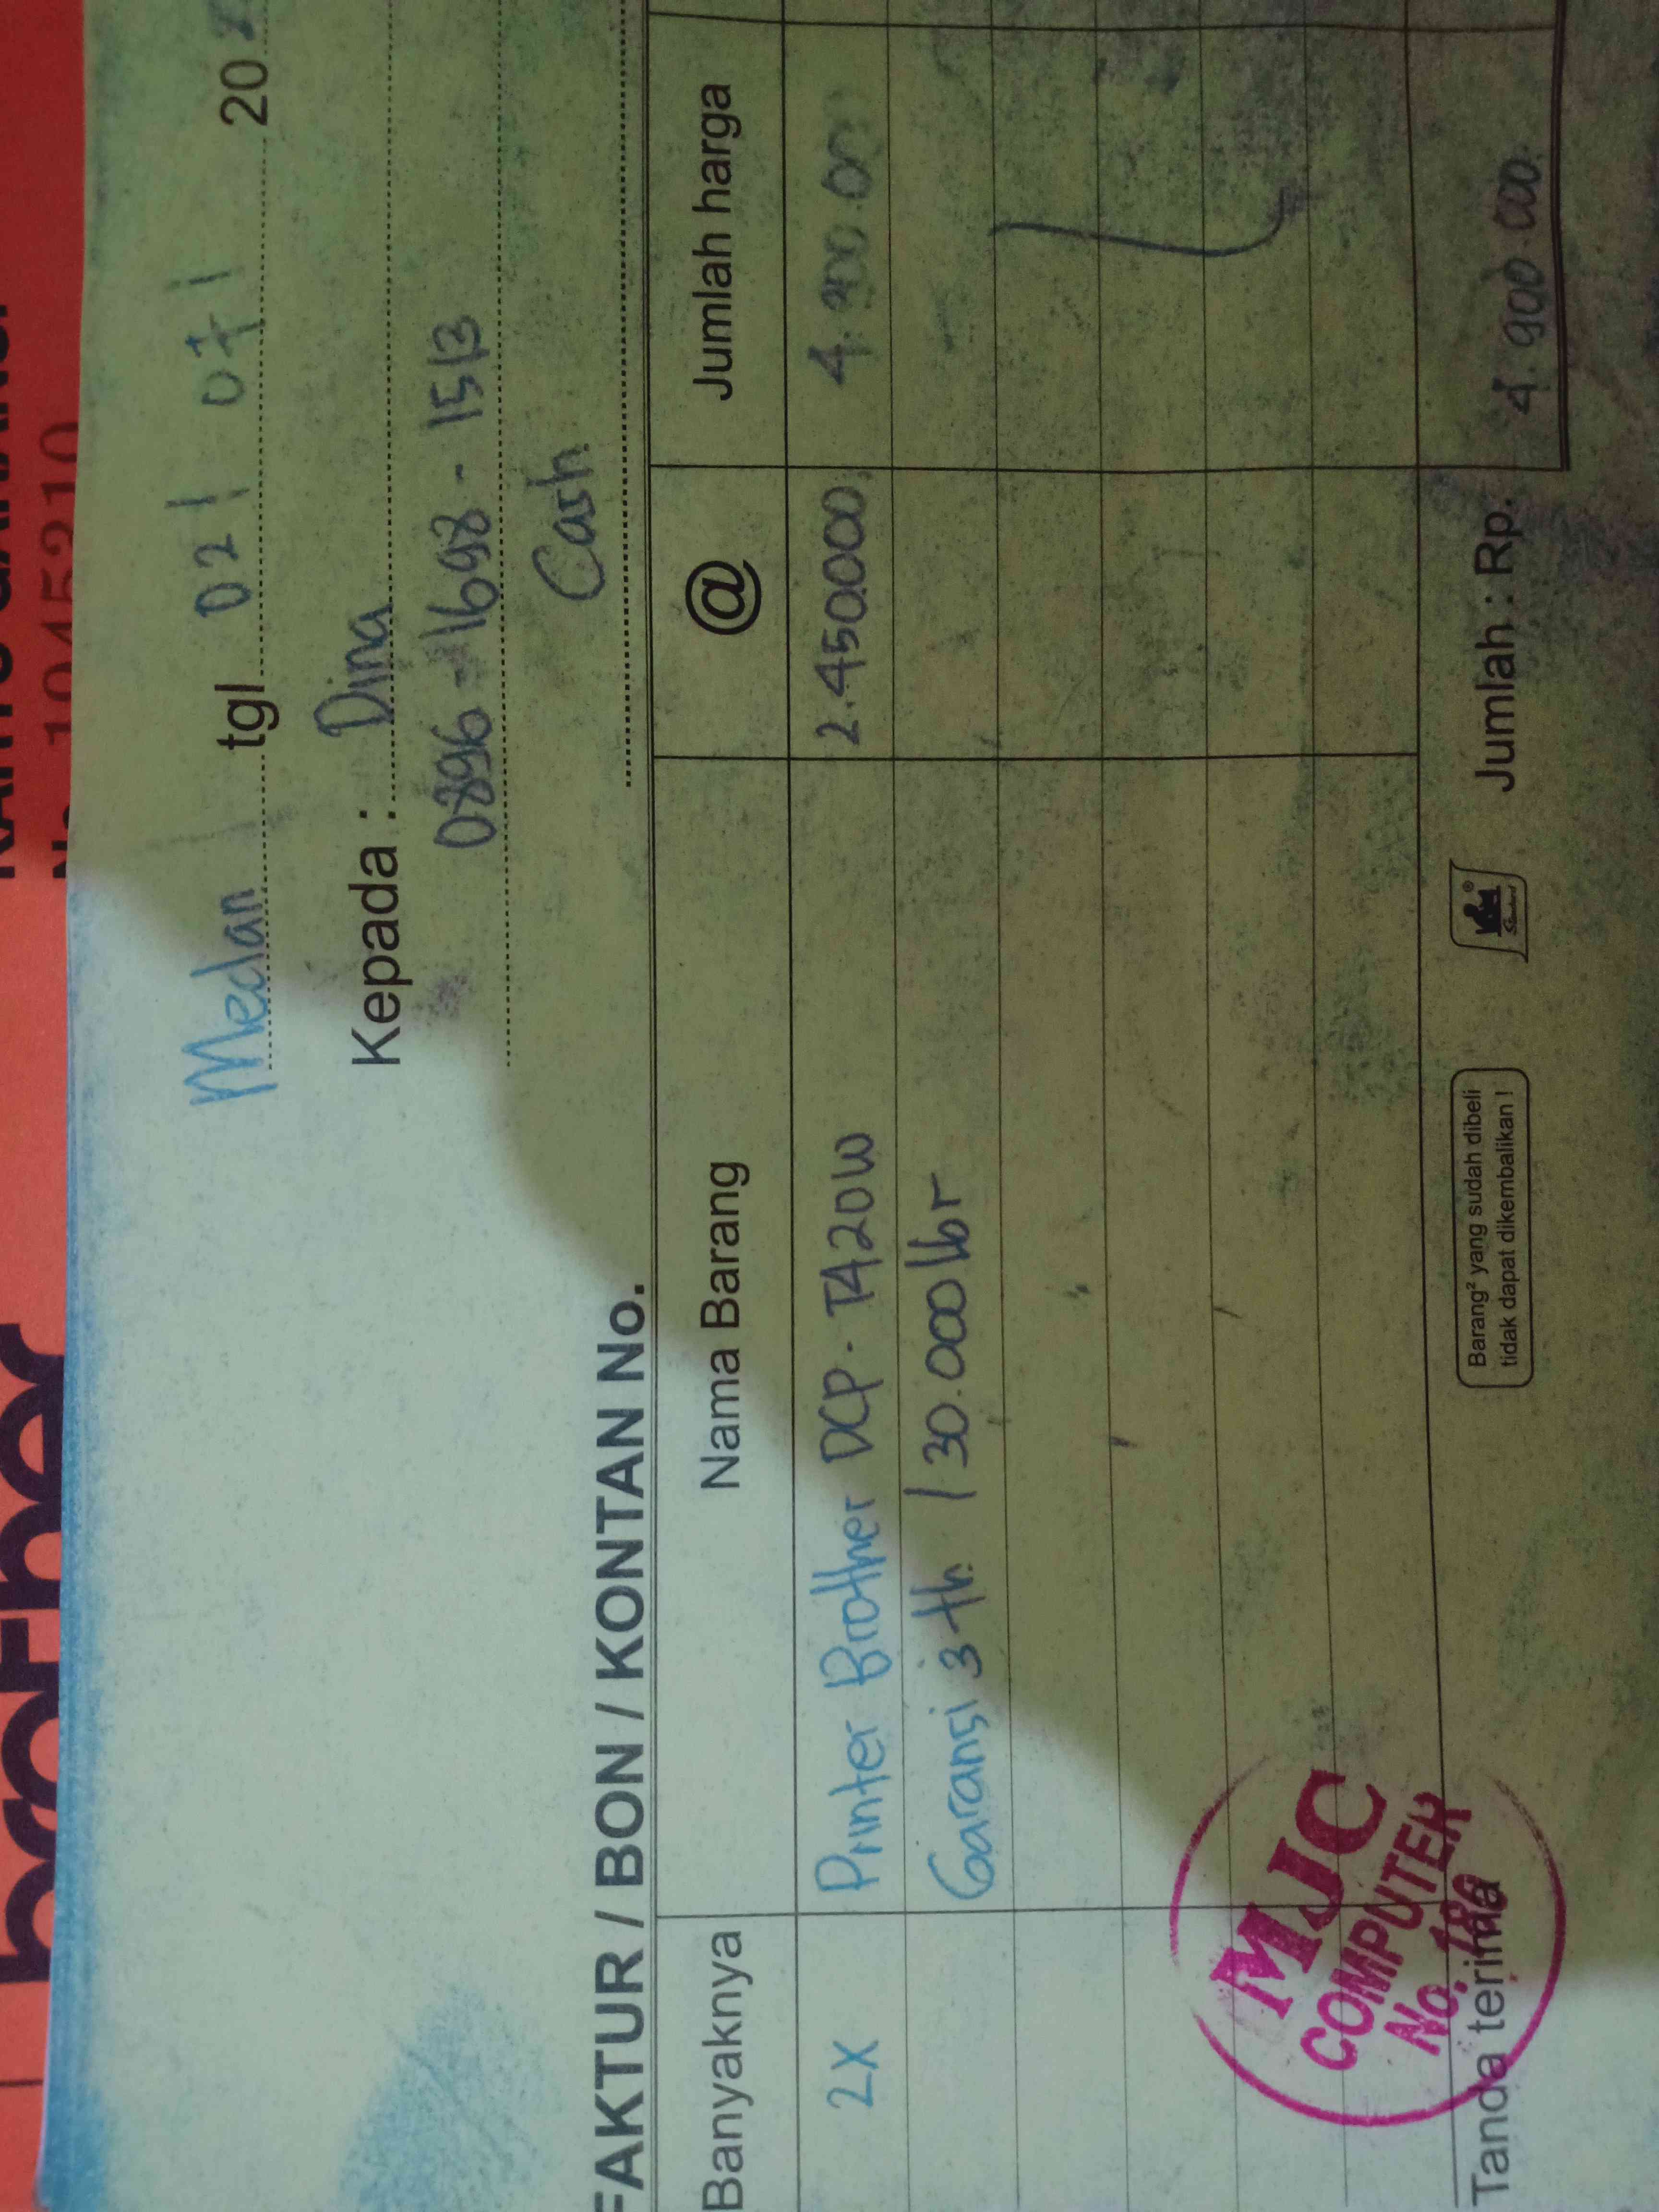 No. 1045210
Medan tgl 02/ 07/ 20
Kepada : Dina
0896-1698-1513
Cash
FAKTUR / BON / KONTAN No.
Banyaknya Nama Barang @ Jumlah harga
2X Printer Brother DCP-T420W 2.450.000, 4.900.000
Garansi 3 th / 30.000 lbr
MJC
COMPUTER
No. 186
Tanda terima
Barang² yang sudah dibeli
tidak dapat dikembalikan !
Jumlah : Rp. 4.900.000